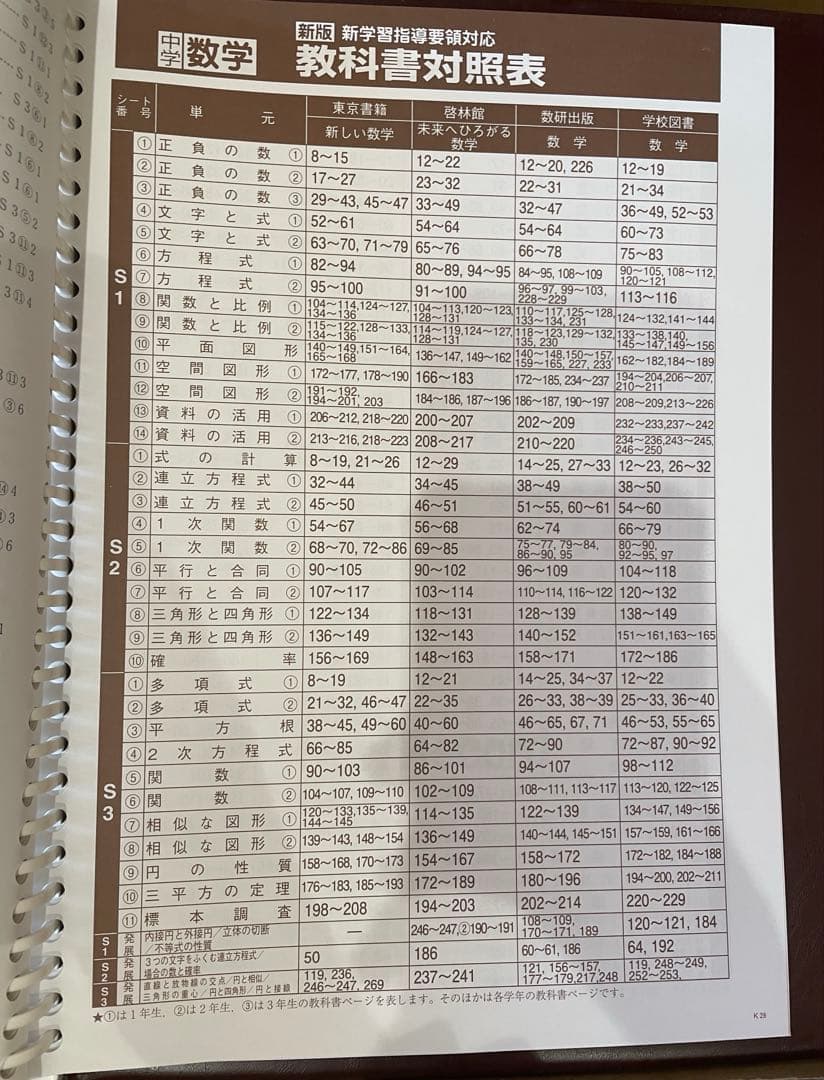 … S 1⑧2
… S 3⑥1
… S 1⑧2
… S 1⑥1
… S 1⑥1
… S 3⑤2
… S 3⑪2
S 1⑪3
3⑪4
3⑪3
③6
⑭4
③3
⑤6
中学 数学 新版 新学習指導要領対応
教科書対照表
シート番号 単元 東京書籍 啓林館 数研出版 学校図書
新しい数学 未来へひろがる数学 数学 数学
S1
① 正負の数① 8〜15 12〜22 12〜20, 226 12〜19
② 正負の数② 17〜27 23〜32 22〜31 21〜34
③ 正負の数③ 29〜43, 45〜47 33〜49 32〜47 36〜49, 52〜53
④ 文字と式① 52〜61 54〜64 54〜64 60〜73
⑤ 文字と式② 63〜70, 71〜79 65〜76 66〜78 75〜83
⑥ 方程式① 82〜94 80〜89, 94〜95 84〜95, 108〜109 90〜105, 108〜112, 120〜121
⑦ 方程式② 95〜100 91〜100 96〜97, 99〜103, 228〜229 113〜116
⑧ 関数と比例① 104〜114,124〜127, 134〜136 104〜113,120〜123, 128〜131 110〜117,125〜128, 133〜134, 231 124〜132,141〜144
⑨ 関数と比例② 115〜122,128〜133, 134〜136 114〜119,124〜127, 128〜131 118〜123,129〜132, 135, 230 133〜138,140, 145〜147,149〜156
⑩ 平面図形 140〜149,151〜164, 165〜168 136〜147, 149〜162 140〜148,150〜157, 159〜165, 227, 233 162〜182, 184〜189
⑪ 空間図形① 172〜177, 178〜190 166〜183 172〜185, 234〜237 194〜204,206〜207, 210〜211
⑫ 空間図形② 191〜192, 194〜201, 203 184〜186, 187〜196 186〜187, 190〜197 208〜209,213〜226
⑬ 資料の活用① 206〜212, 218〜220 200〜207 202〜209 232〜233,237〜242
⑭ 資料の活用② 213〜216, 218〜223 208〜217 210〜220 234〜236,243〜245, 246〜250
S2
① 式の計算 8〜19, 21〜26 12〜29 14〜25, 27〜33 12〜23, 26〜32
② 連立方程式① 32〜44 34〜45 38〜49 38〜50
③ 連立方程式② 45〜50 46〜51 51〜55, 60〜61 54〜60
④ 1次関数① 54〜67 56〜68 62〜74 66〜79
⑤ 1次関数② 68〜70, 72〜86 69〜85 75〜77, 79〜84, 86〜90, 95 80〜90, 92〜95, 97
⑥ 平行と合同① 90〜105 90〜102 96〜109 104〜118
⑦ 平行と合同② 107〜117 103〜114 110〜114, 116〜122 120〜132
⑧ 三角形と四角形① 122〜134 118〜131 128〜139 138〜149
⑨ 三角形と四角形② 136〜149 132〜143 140〜152 151〜161,163〜165
⑩ 確率 156〜169 148〜163 158〜171 172〜186
S3
① 多項式① 8〜19 12〜21 14〜25, 34〜37 12〜22
② 多項式② 21〜32, 46〜47 22〜35 26〜33, 38〜39 25〜33, 36〜40
③ 平方根 38〜45, 49〜60 40〜60 46〜65, 67, 71 46〜53, 55〜65
④ 2次方程式 66〜85 64〜82 72〜90 72〜87, 90〜92
⑤ 関数① 90〜103 86〜101 94〜107 98〜112
⑥ 関数② 104〜107, 109〜110 102〜109 108〜111, 113〜117 113〜120, 122〜125
⑦ 相似な図形① 120〜133,135〜139, 144〜145 114〜135 122〜139 134〜147, 149〜156
⑧ 相似な図形② 139〜143, 148〜154 136〜149 140〜144, 145〜151 157〜159, 161〜166
⑨ 円の性質 158〜168, 170〜173 154〜167 158〜172 172〜182, 184〜188
⑩ 三平方の定理 176〜183, 185〜193 172〜189 180〜196 194〜200, 202〜211
⑪ 標本調査 198〜208 194〜203 202〜214 220〜229
S1 発展 内接円と外接円/立体の切断/不等式の性質 — 246〜247,②190〜191 108〜109, 170〜171, 189 120〜121, 184
S2 発展 3つの文字をふくむ連立方程式/場合の数と確率 50 186 60〜61, 186 64, 192
S3 発展 直線と放物線の交点/円と相似/三角形の重心/円と四角形/円と接線 119, 236, 246〜247, 269 237〜241 121, 156〜157, 177〜179,217,248 119, 248〜249, 252〜253,
★①は1年生, ②は2年生, ③は3年生の教科書ページを表します。そのほかは各学年の教科書ページです。
K28